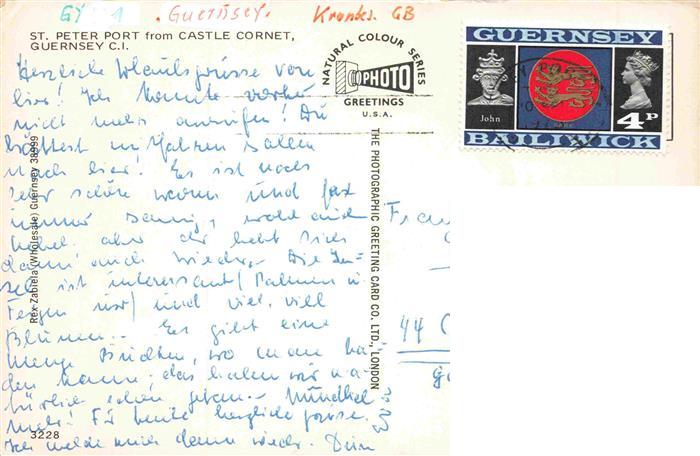 GY
Guernsey.
Kronks. GB
ST. PETER PORT from CASTLE CORNET,
GUERNSEY C.I.
NATURAL COLOUR SERIES
PHOTO
GREETINGS
U.S.A.
GUERNSEY
John
4P
BAILIWICK
Herzliche Urlaubsgrüsse von
hier! Ich konnte vorher
nicht mehr anrufen! Du
hättest mitfahren sollen
nach hier! Es ist noch
sehr schön warm und fast
immer sonnig, wohl auch
Nebel aber der hebt sich
dann auch wieder. Die In-
sel ist interessant/Palmen u
Feigen usw/ und viel, viel
Blumen. Es gibt eine
Menge Buchten, wo man ba-
den kann, das haben wir na-
türlich schon getan. Mündlich
mehr! Für heute herzliche Grüsse.
Ich melde mich dann wieder. Dein
Rex Zabiela (Wholesale) Guernsey 38999
THE PHOTOGRAPHIC GREETING CARD CO. LTD., LONDON
Frau
44
3228